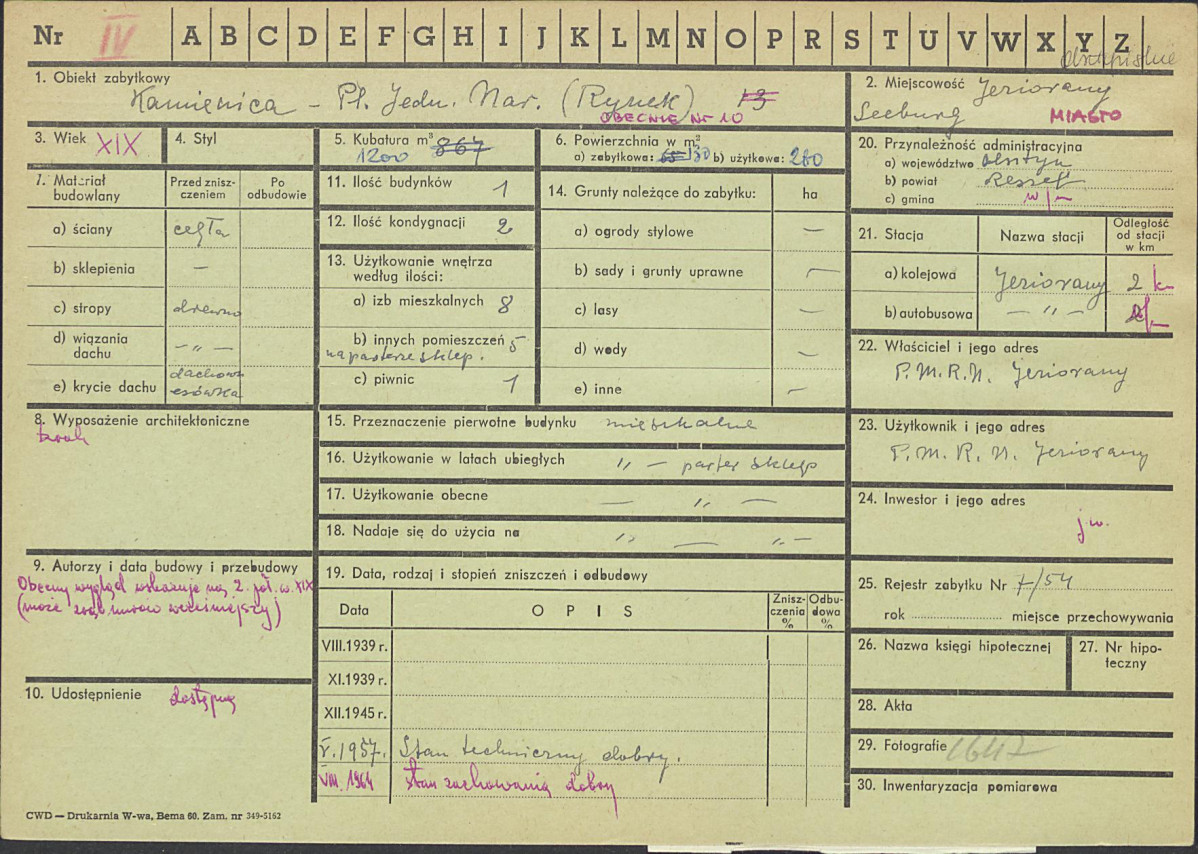 Nr IV A B C D E F G H I J K L M N O P R S T U V W X Y Z
1. Obiekt zabytkowy
Kamienica – Pl. Jedn. Nar. (Rynek) 13
OBECNIE NR 10
2. Miejscowość Jeziorany
Seeburg MIASTO
3. Wiek XIX
4. Styl
5. Kubatura m³ 867
1200
6. Powierzchnia w m²
a) zabytkowa: 65 130 b) użytkowa: 260
20. Przynależność administracyjna
a) województwo Olsztyn
b) powiat Reszel
c) gmina w/m
7. Materiał budowlany
Przed zniszczeniem
Po odbudowie
a) ściany cegła
b) sklepienia —
c) stropy drewno
d) wiązania dachu — „ —
e) krycie dachu dachówka esówka
11. Ilość budynków 1
12. Ilość kondygnacji 2
13. Użytkowanie wnętrza według ilości:
a) izb mieszkalnych 8
b) innych pomieszczeń 5
na parterze sklep.
c) piwnic 1
14. Grunty należące do zabytku: ha
a) ogrody stylowe —
b) sady i grunty uprawne —
c) lasy —
d) wody —
e) inne —
21. Stacja
Nazwa stacji
Odległość od stacji w km
a) kolejowa Jeziorany 2 km
b) autobusowa — „ —
22. Właściciel i jego adres
P.M.R.N. Jeziorany
8. Wyposażenie architektoniczne
brak
15. Przeznaczenie pierwotne budynku mieszkalne
16. Użytkowanie w latach ubiegłych „ — parter sklep
17. Użytkowanie obecne — „ —
18. Nadaje się do użycia na „ — „ —
23. Użytkownik i jego adres
P.M.R.N. Jeziorany
24. Inwestor i jego adres
j.w.
9. Autorzy i data budowy i przebudowy
Obecny wygląd wskazuje na 2. poł. w. XIX
(może zrąb murów wcześniejszy)
19. Data, rodzaj i stopień zniszczeń i odbudowy
Data
OPIS
Zniszczenia %
Odbudowa %
VIII.1939 r.
XI.1939 r.
XII.1945 r.
V.1957. Stan techniczny dobry.
VIII. 1964 stan zachowania dobry
25. Rejestr zabytku Nr 7/54
rok miejsce przechowywania
26. Nazwa księgi hipotecznej
27. Nr hipoteczny
10. Udostępnienie dostępny
28. Akta
29. Fotografie 1647
30. Inwentaryzacja pomiarowa
CWD — Drukarnia W-wa, Bema 60. Zam. nr 349-5162